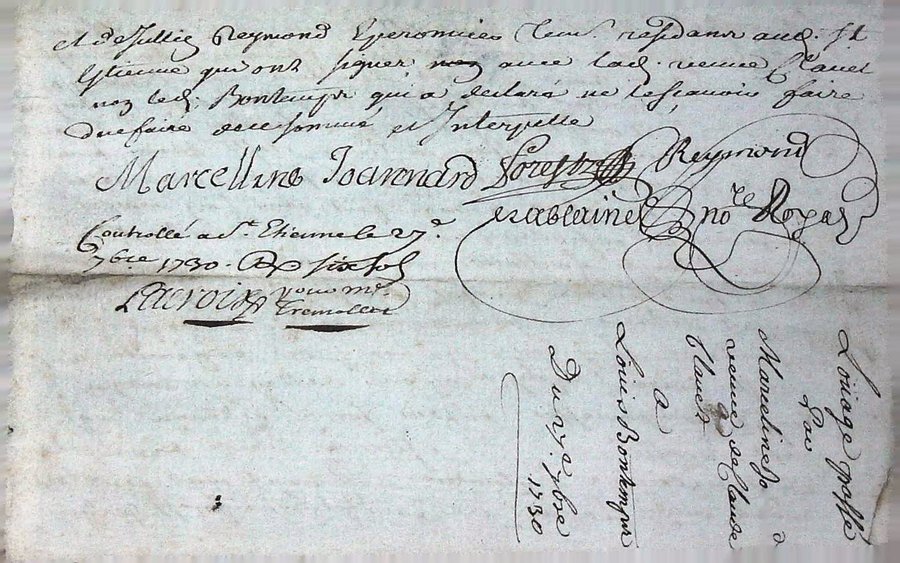 et de Jullie Reymond Eperonnier temo. residant aud. St
Etienne qui ont signer avec lad. veuve Clauel
non led. Bontemps qui a declaré ne le scavoir faire
due faire de ce sommé et Interpellé
Marcelline Joannard Forest Reymond
nore Royal
Controllé a St. Etienne le 27e
7bre 1730. R six sol
Lacroix pour Mr.
Tremollet
Louage passé
par
Marceline Jo
veuve de Claude
Clauel
a
Louis Bontemps
Du 7bre
1730